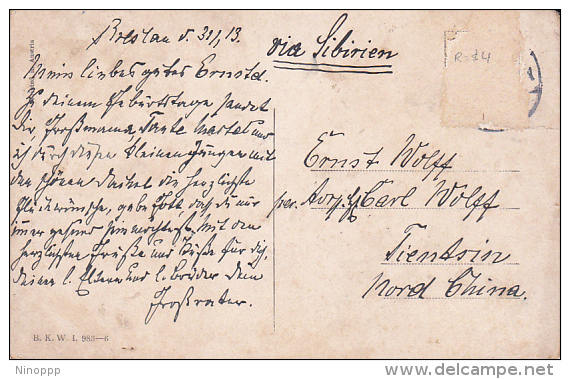 Breslau d. 31/1.13.
via Sibirien
Mein liebes gutes Ernstel.
Zu deinem Geburtstage sendet
Dir, Großmama, Tante und
ich durch diesen kleinen Jungen mit
den schönen die herzlichsten
Glückwünsche, gebe Gott, daß du nur
immer gesund. Mit den
herzlichsten Grüße und Küße für dich,
deine l. Eltern und l. Brüder dein
Großvater.
R=74
Ernst Wolff
per. Adr. Carl Wolff
Tientsin
Nord China.
B. K. W. I. 983-6
Ninoppp
delcampe.net